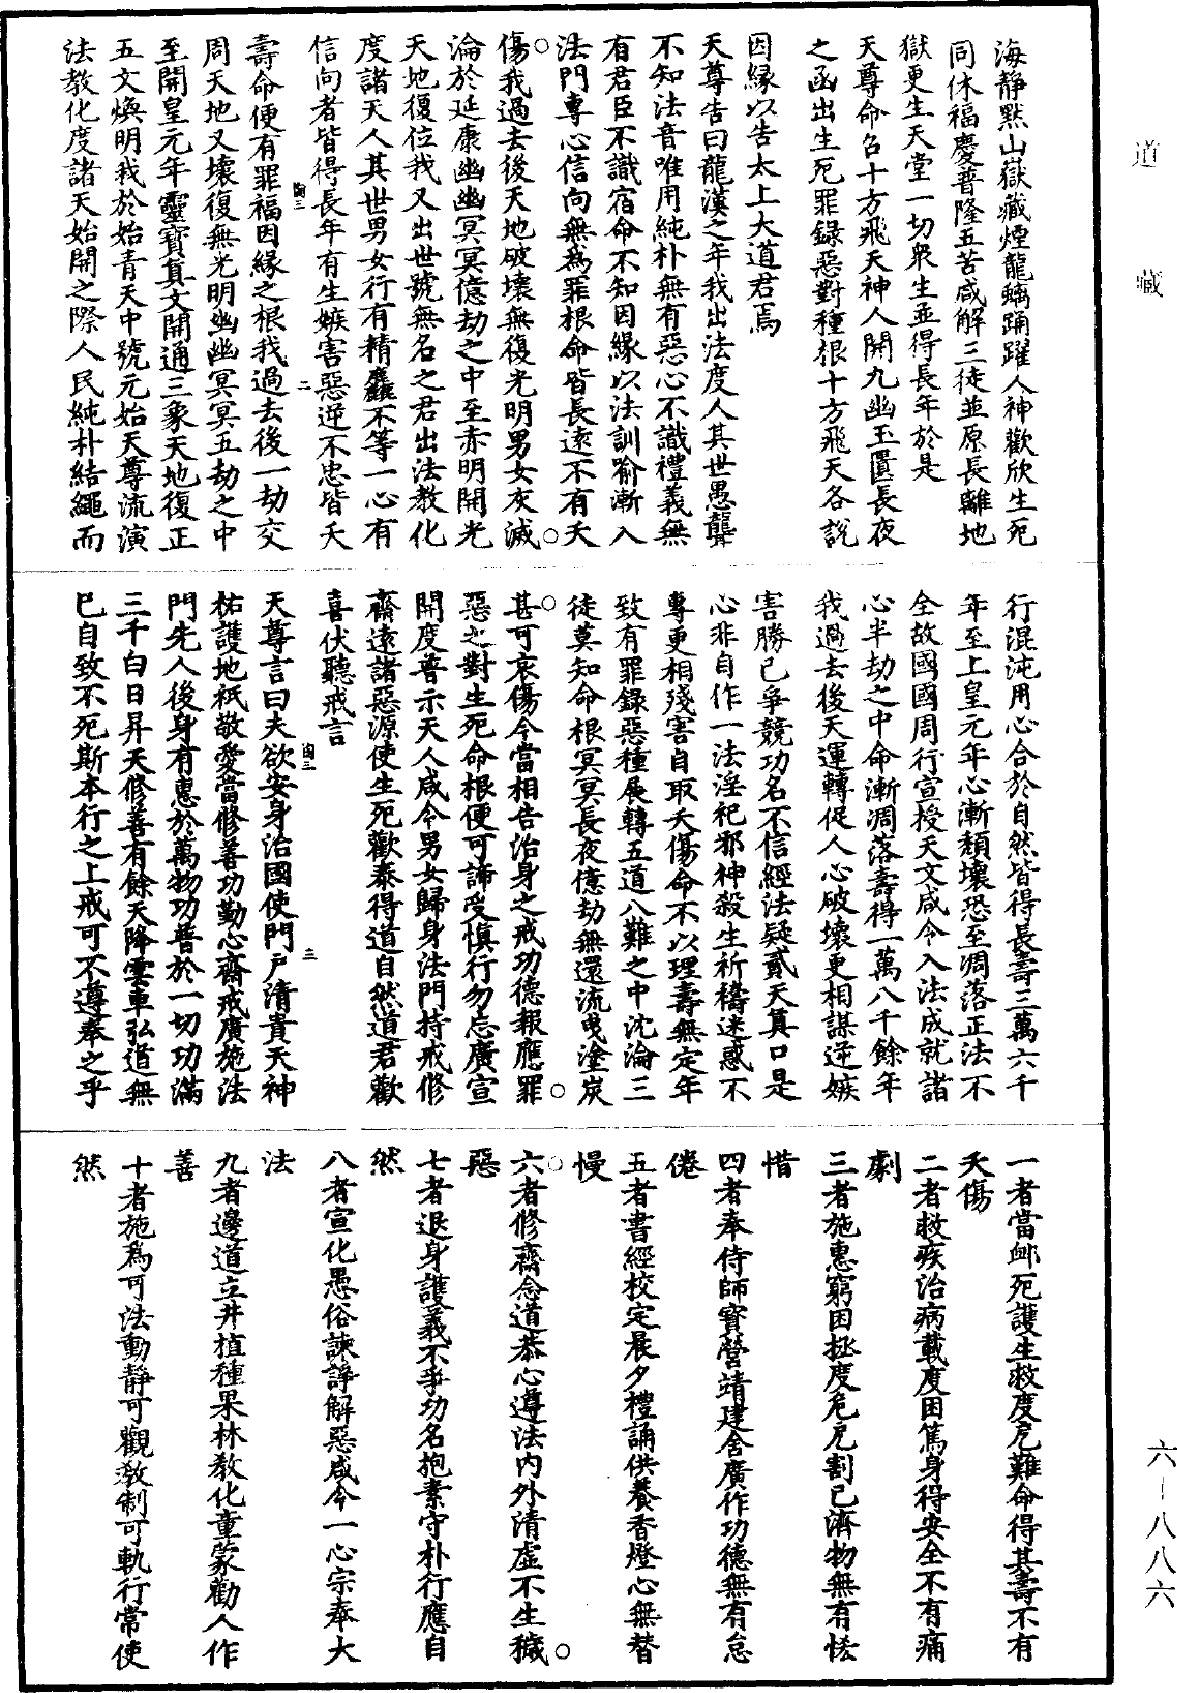 道藏
六－八八六
海靜默山嶽藏煙龍螭踊躍人神歡欣生死
同休福慶普隆五苦咸解三徒並原長離地
獄更生天堂一切衆生並得長年於是
天尊命召十方飛天神人開九幽玉匱長夜
之函出生死罪錄惡對種根十方飛天各說
因緣以告太上大道君焉
天尊告曰龍漢之年我出法度人其世愚聾
不知法音唯用純朴無有惡心不識禮義無
有君臣不識宿命不知因緣以法訓喻漸入
法門專心信向無爲罪根命皆長遠不有夭
傷我過去後天地破壞無復光明男女灰滅
淪於延康幽幽冥冥億劫之中至赤明開光
天地復位我又出世號無名之君出法教化
度諸天人其世男女行有精麤不等一心有
信向者皆得長年有生嫉害惡逆不忠皆夭
壽命便有罪福因緣之根我過去後一劫交
周天地又壞復無光明幽幽冥冥五劫之中
至開皇元年靈寶真文開通三象天地復正
五文煥明我於始青天中號元始天尊流演
法教化度諸天始開之際人民純朴結繩而
行混沌用心合於自然皆得長壽三萬六千
年至上皇元年心漸頹壞恐至凋落正法不
全故國國周行宣授天文咸令入法成就諸
心半劫之中命漸凋落壽得一萬八千餘年
我過去後天運轉促人心破壞更相謀逆嫉
害勝己爭競功名不信經法疑貳天真口是
心非自作一法淫祀邪神殺生祈禱迷惑不
專更相殘害自取夭傷命不以理壽無定年
致有罪錄惡種展轉五道八難之中沈淪三
徒莫知命根冥冥長夜億劫無還流曳塗炭
甚可哀傷今當相告治身之戒功德報應罪
惡之對生死命根便可諦受慎行勿忘廣宣
開度普示天人咸令男女歸身法門持戒修
齋遠諸惡源使生死歡泰得道自然道君歡
喜伏聽戒言
天尊言曰夫欲安身治國使門戶清貴天神
祐護地祇敬愛當修善功勤心齋戒廣施法
門先人後身有惠於萬物功普於一切功滿
三千白日昇天修善有餘天降雲車弘道無
已自致不死斯本行之上戒可不遵奉之乎
一者當卹死護生救度危難命得其壽不有
夭傷
二者救疾治病載度困篤身得安全不有痛
劇
三者施惠窮困拯度危厄割己濟物無有悋
惜
四者奉侍師寶營靖建舍廣作功德無有怠
倦
五者書經校定晨夕禮誦供養香燈心無替
慢
六者修齋念道恭心遵法內外清虛不生穢
惡
七者退身護義不爭功名抱素守朴行應自
然
八者宣化愚俗諫諍解惡咸令一心宗奉大
法
九者邊道立井植種果林教化童蒙勸人作
善
十者施爲可法動靜可觀教制可軌行常使
然